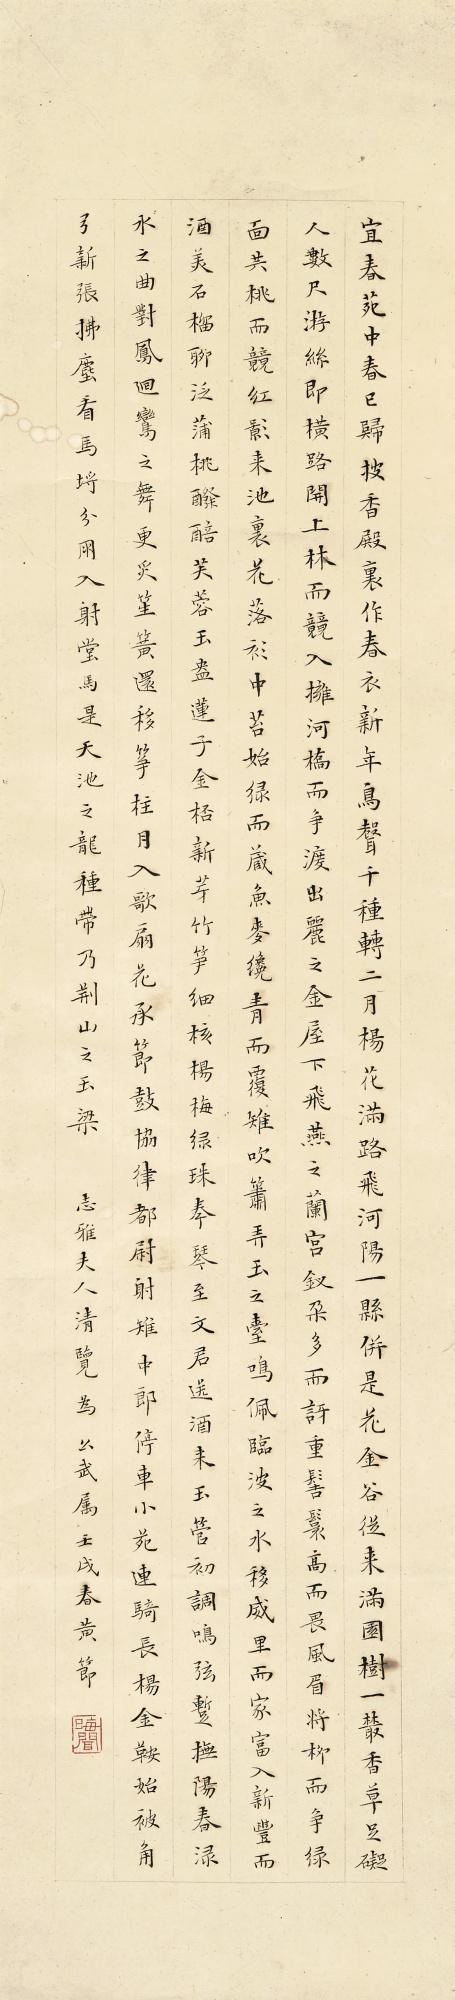 宜春苑中春已歸披香殿裏作春衣新年鳥聲千種轉二月楊花滿路飛河陽一縣併是花金谷從来滿園樹一叢香草足礙
人數尺游絲即橫路開上林而競入擁河橋而争渡出麗之金屋下飛燕之蘭宫釵朶多而訝重髻鬟高而畏風眉将柳而争绿
面共桃而競红影来池裏花落衫中苔始绿而蔵魚麥纔青而覆雉吹簫弄玉之臺鳴佩臨波之水移戚里而家富入新豐而
酒美石榴聊泛蒲桃醱醅芙蓉玉盌蓮子金桮新芽竹笋细核楊梅绿珠奉琴至文君送酒来玉管初調鳴弦暫撫陽春渌
水之曲對鳳迴鸞之舞更炙笙簧還移筝柱月入歌扇花承節鼓協律都尉射雉中郎停車小苑連騎長楊金鞍始被角
弓新張拂塵看馬埒分朋入射堂馬是天池之龍種帶乃荆山之玉梁 志雅夫人清覽為 公武属 壬戌春黄節
晦聞